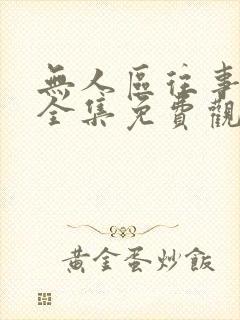 無人區往事
全集免費觀
黃金蛋炒飯